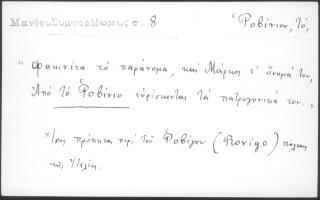 ΜανθουΣυμφορΜωρεως σ. 8
Ῥοβίνιον, τό,
"Φακινέτα τό παράνομα, καί Μάρκος τ' ὄνομά του,
Ἀπό τό Ῥοβίνιο εὑρίσκονται τά πατρογονικά του."
Ἴσως πρόκειται περί τοῦ Ῥοβίγου (Rovigo) πόλεως
τῆς Ἰταλίας.